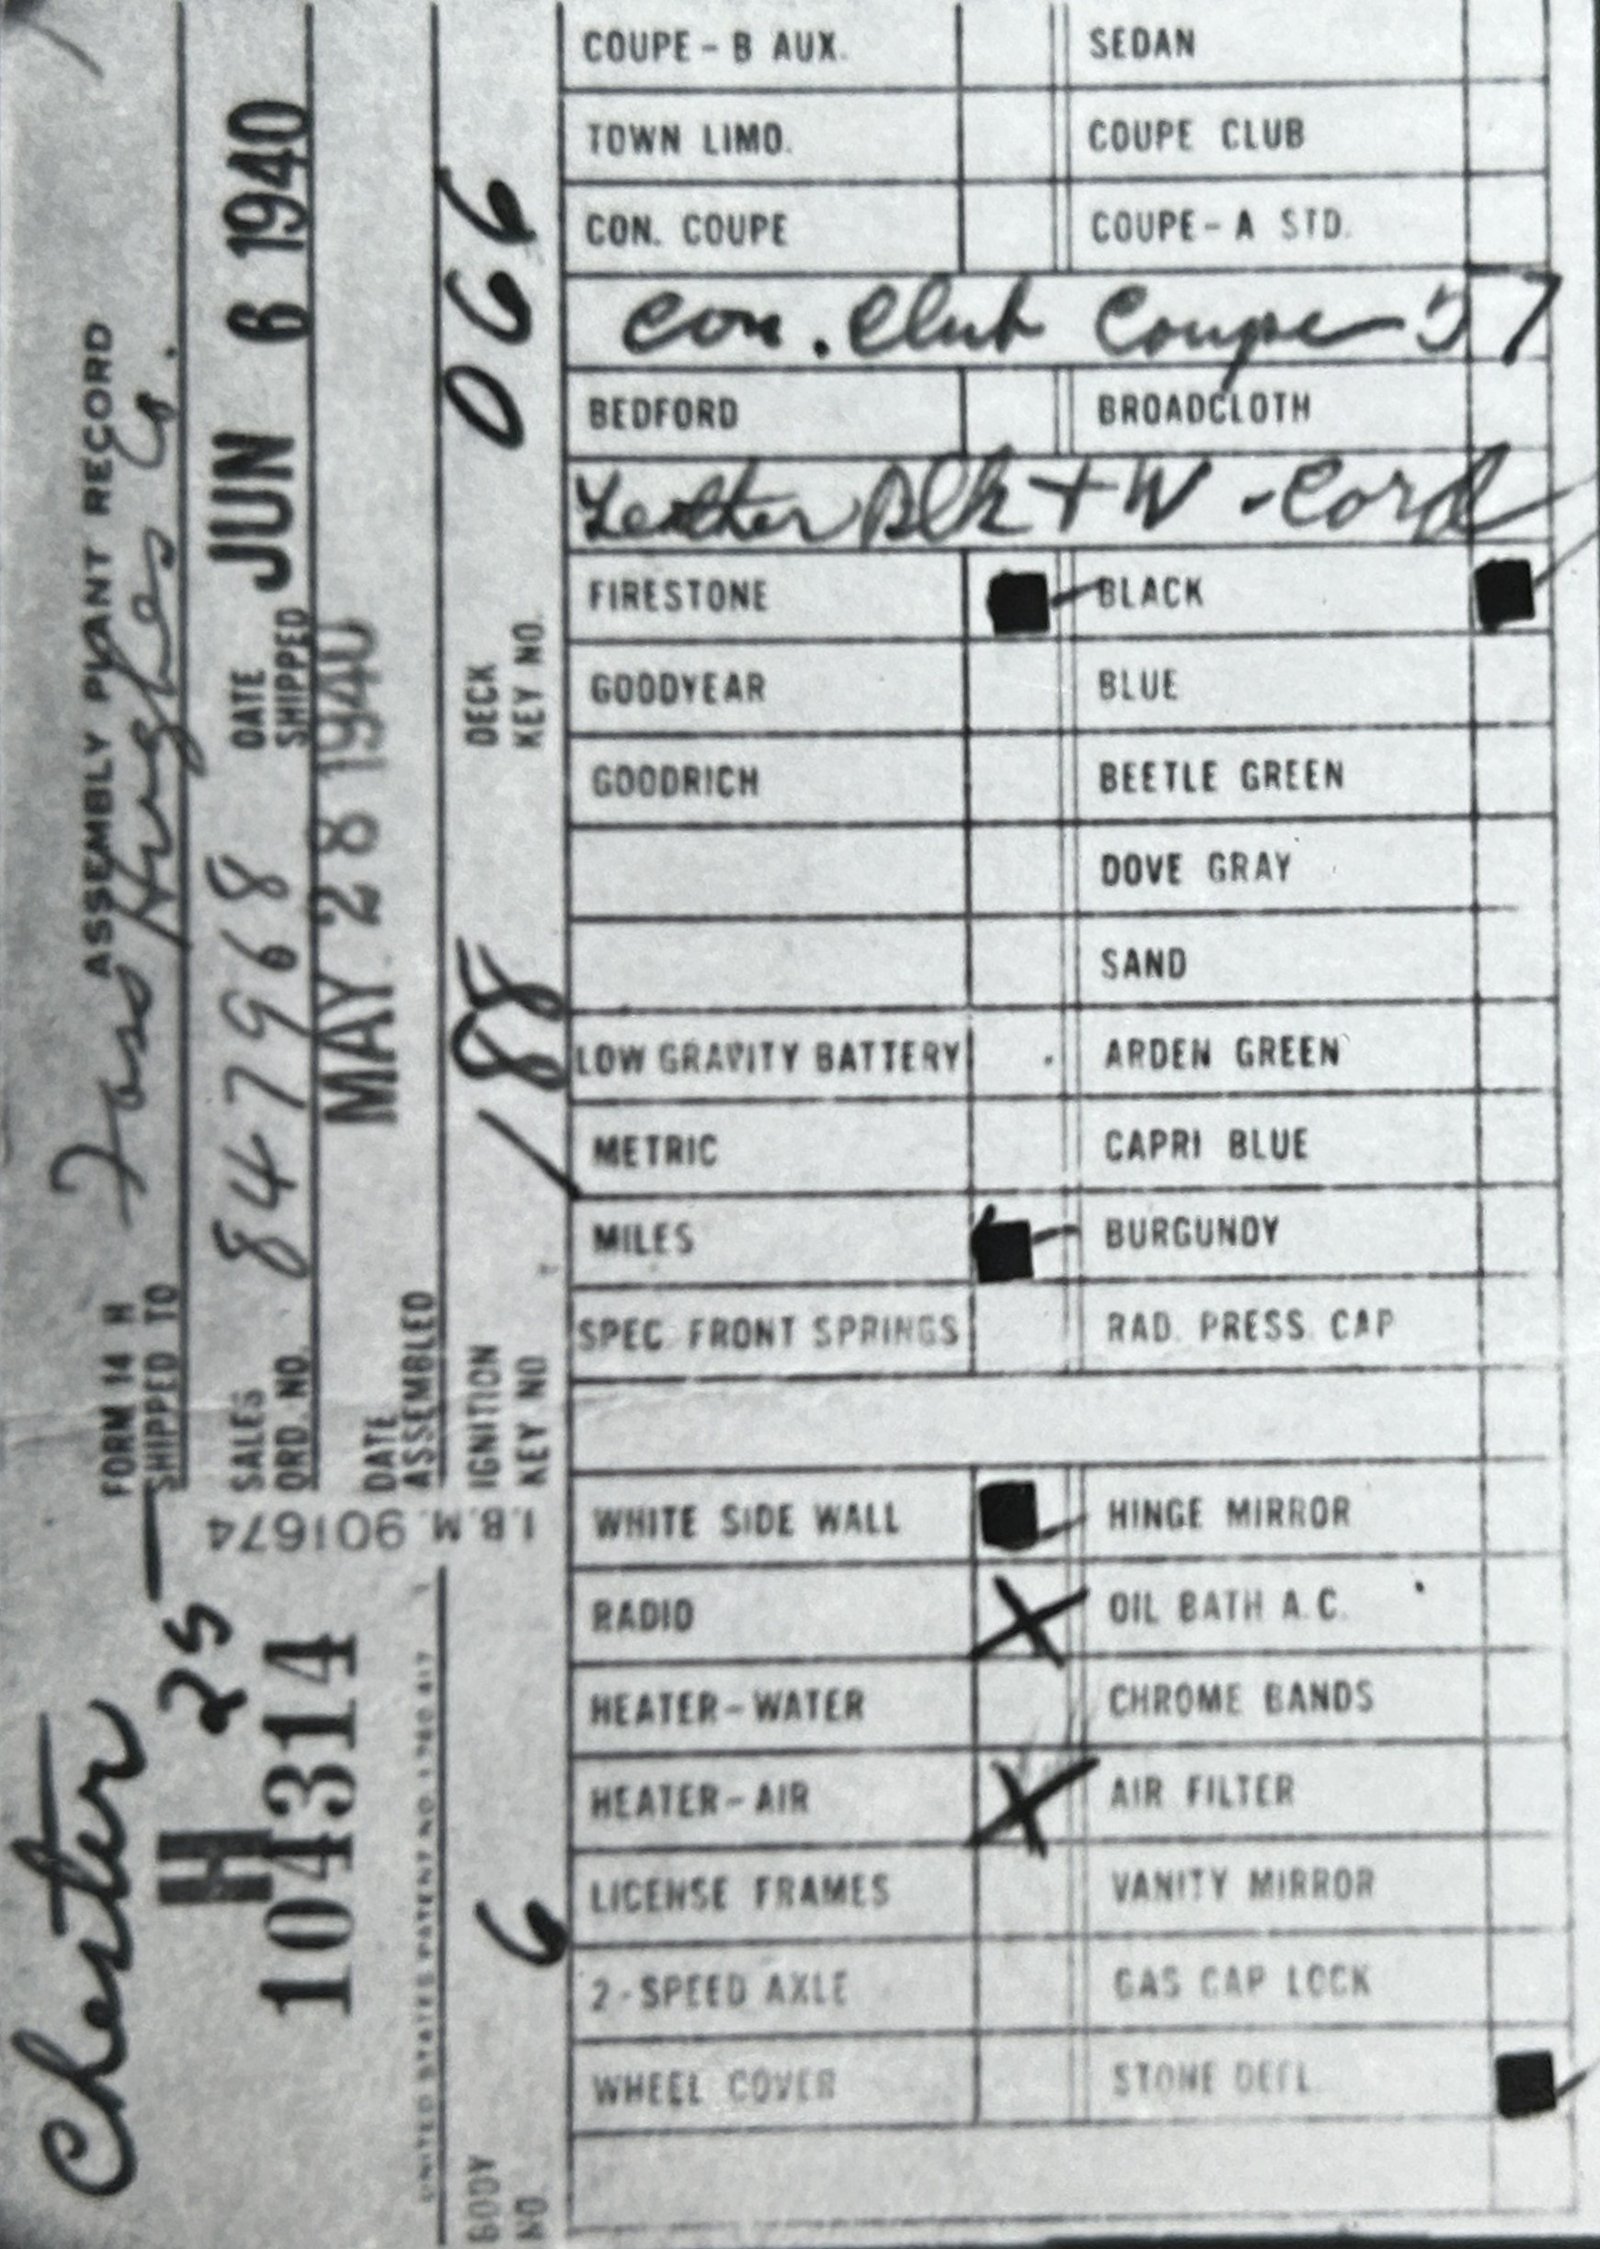 Chester
H 25
104314
UNITED STATES PATENT NO. 1780 817
I.B.M. 901674
FORM 14 H ASSEMBLY PLANT RECORD
SHIPPED TO Hughes Co.
SALES ORD. NO. 847968 DATE SHIPPED JUN 6 1940
DATE ASSEMBLED MAY 28 1940
BODY NO. 6 IGNITION KEY NO. 188 DECK KEY NO. 066
COUPE - B AUX. SEDAN
TOWN LIMO. COUPE CLUB
CON. COUPE COUPE - A STD.
Con. Club Coupe - 57
BEDFORD BROADCLOTH
Leather Blk + W - Cord
FIRESTONE BLACK
GOODYEAR BLUE
GOODRICH BEETLE GREEN
DOVE GRAY
SAND
LOW GRAVITY BATTERY ARDEN GREEN
METRIC CAPRI BLUE
MILES BURGUNDY
SPEC. FRONT SPRINGS RAD. PRESS. CAP
WHITE SIDE WALL HINGE MIRROR
RADIO X OIL BATH A.C.
HEATER - WATER CHROME BANDS
HEATER - AIR X AIR FILTER
LICENSE FRAMES VANITY MIRROR
2 - SPEED AXLE GAS CAP LOCK
WHEEL COVER STONE DEFL.